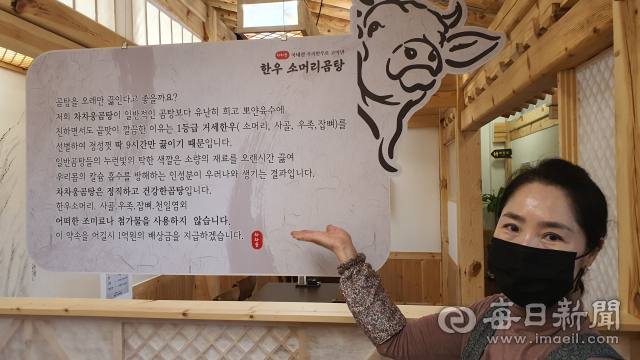 차차웅 국내산 우리한우로 고아낸
한우 소머리곰탕
곰탕을 오래만 끓인다고 좋을까요?
저희 차차웅곰탕이 일반적인 곰탕보다 유난히 희고 뽀얀육수에
진하면서도 끝맛이 깔끔한 이유는 1등급 거세한우( 소머리, 사골, 우족,잡뼈)를
선별하여 정성껏 딱 9시간만 끓이기 때문입니다.
일반곰탕들의 누런빛의 탁한 색깔은 소량의 재료를 오랜시간 끓여
우리몸의 칼슘 흡수를 방해하는 인성분이 우러나와 생기는 결과입니다.
차차웅곰탕은 정직하고 건강한곰탕입니다.
한우소머리, 사골,우족,잡뼈,천일염외
어떠한 조미료나 첨가물을 사용하지 않습니다.
이 약속을 어길시 1억원의 배상금을 지급하겠습니다.
차차웅
每日新聞
www.imaeil.com